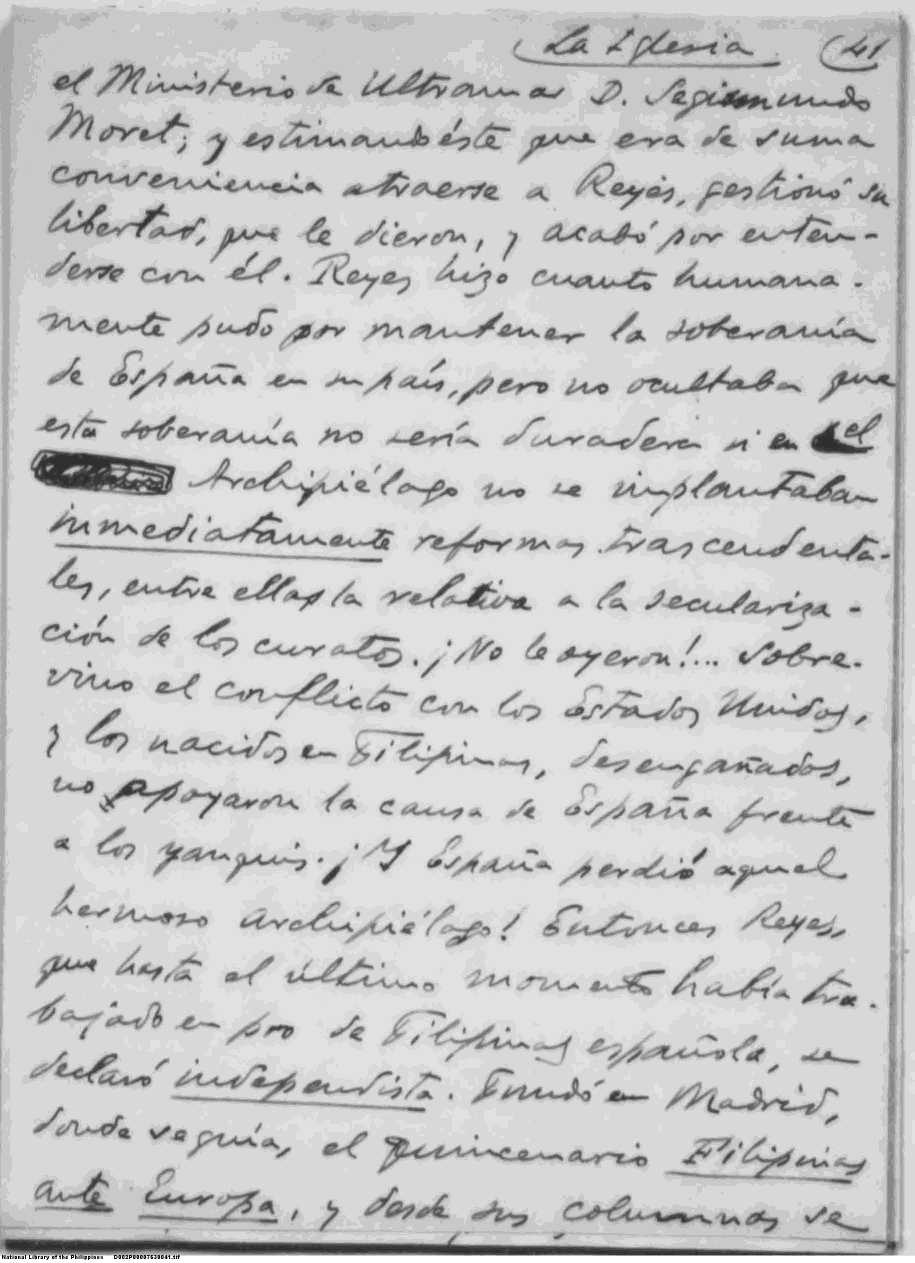 La Iglesia (41
el Ministerio de Ultramar D. Segismundo
Moret; y estimando éste que era de suma
conveniencia atraerse a Reyes, gestionó su
libertad, que le dieron, y acabó por enten-
derse con él. Reyes hizo cuanto humana-
mente pudo por mantener la soberanía
de España en su país, pero no ocultaba que
esta soberanía no sería duradera si en el
Archipiélago no se implantaban
inmediatamente reformas trascendenta-
les, entre ellas la relativa a la seculariza-
ción de los curatos. ¡No le oyeron!... Sobre-
vino el conflicto con los Estados Unidos,
y los nacidos en Filipinas, desengañados,
no apoyaron la causa de España frente
a los yanquis. ¡Y España perdió aquel
hermoso archipiélago! Entonces Reyes,
que hasta el último momento había tra-
bajado en pro de Filipinas española, se
declaró independista. Fundó en Madrid,
donde seguía, el quincenario Filipinas
ante Europa, y desde sus columnas se
National Library of the Philippines D002P00007630041.tif